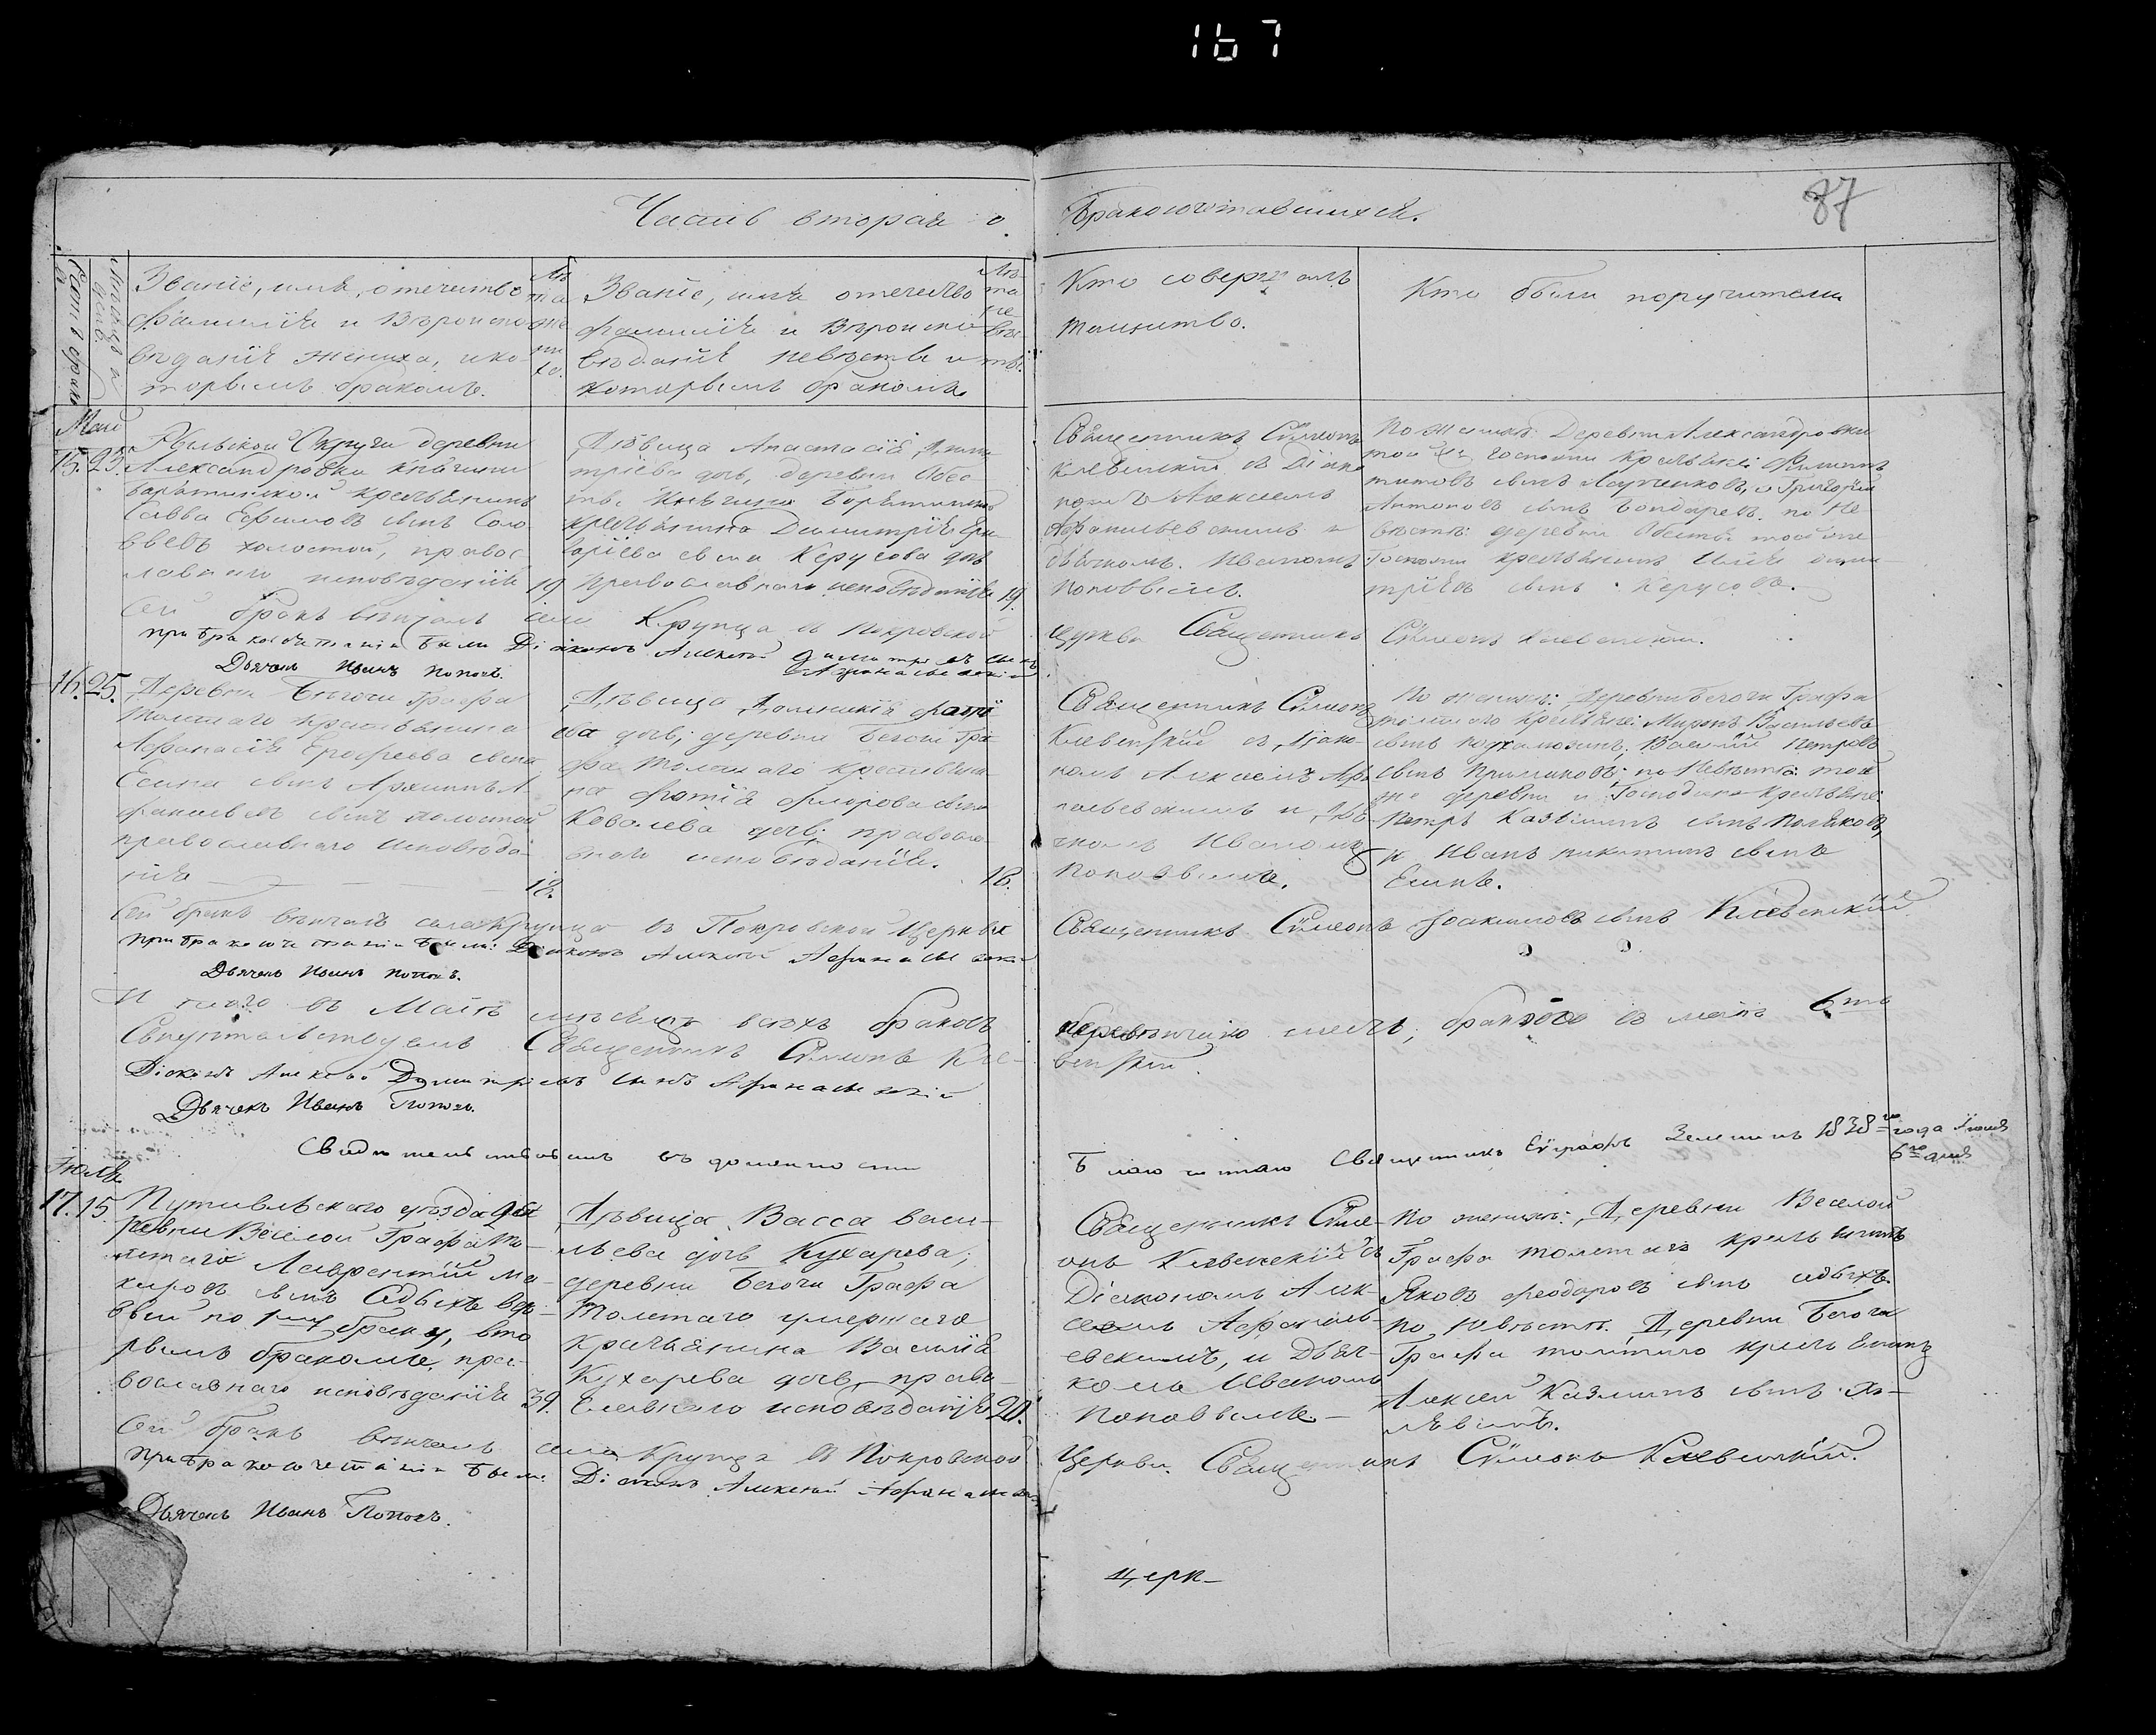 167
87
Часть вторая о
Бракосочетавшихся.
Счетъ браковъ
Мѣсяцъ и день
Званіе, имя, отечество
фамилія и Вѣроиспо
вѣданіе жениха, и ко-
торымъ бракомъ.
Лѣ
та
же
ни
ха.
Званіе, имя отечество
фамилія и Вѣроиспо
вѣданіе невѣсты и
которымъ бракомъ
Лѣ-
та
не
вѣс
ты.
Кто совершалъ
таинство.
Кто были поручители
Май
15. 25.
Рыльской Округи деревни
Александровки княгини
Барятинской крестьянинъ
Савва Ефимовъ сынъ Соло
вьевъ холостой, правос
лавнаго исповѣданія
19
Дѣвица Анастасія Дими
тріева дочь, деревни Обес
ты, Княгини Борятинской
крестьянина Димитрія Гри
горіева сына Керусова дочь
Православнаго исповѣданія
19.
Священникъ Сѵмеонъ
Клевенскій съ Діако
номъ Алексѣемъ
Афанасьевскимъ и
дьячкомъ Иваномъ
Поповымъ.
По женихѣ: Деревни Александровки
той же Госпожи крестьяне Филиппъ
Титовъ сынъ Лаученковъ, и Григорій
Антоновъ сынъ Бондаревъ. по Не
вѣстѣ: деревни Обесты той же
Госпожи крестьянинъ Илья Дими
тріевъ сынъ Керусовъ.
Сей бракъ вѣнчалъ села Крупца въ Покровской
Церкви Священникъ Сѵмеонъ Клевенскій.
При бракосочетаніи были Діаконъ Алексѣй Димитріевъ сынъ
Афанасьевскій
Дьячекъ Иванъ Поповъ.
16. 25.
Деревни Бегочи Графа
Толстаго крестьянина
Афанасія Ерофеева сына
Есина сынъ Архиппъ А
фанасьевъ сынъ холостой
православнаго исповѣда-
нія
18.
Дѣвица Домникія Фотіе
ва дочь, деревни Бегочи Гра-
фа Толстаго крестьяни-
на Фотія Флорова сына
Ковалева дочь, правосла-
внаго исповѣданія.
18.
Священникъ Сѵмеонъ
Клевенскій съ Діако-
номъ Алексѣемъ Афа
насьевскимъ и Дья-
чкомъ Иваномъ
Поповымъ.
По женихѣ: Деревни Бегочи Графа
Толстаго крестьяне: Миронъ Васильевъ
сынъ; Василій Петровъ
сынъ; по Невѣстѣ: той
же деревни и Господина крестьяне
Петръ Казьминъ сынъ Поляковъ,
и Иванъ Никитинъ сынъ
Есинъ.
Сей бракъ вѣнчалъ села Крупца въ Покровской Церкви
Священникъ Сѵмеонъ Іоакимовъ сынъ Клевенскій
При бракосочетаніи были: Діаконъ Алексѣй Афанасьевскій
Дьячекъ Иванъ Поповъ.
Итого въ Маіѣ мѣсяцѣ всѣхъ браковъ
перевѣнчано шесть, браковъ въ маіѣ 6ть
Свидѣтельствуемъ Священникъ Сѵмеонъ Кле-
венскій.
Діаконъ Алексѣй Димитріевъ сынъ Афанасьевскій
Дьячекъ Иванъ Поповъ.
Свидетельствовалъ въ должности
Благочиннаго Священникъ Евграфъ Зеленинъ 1838го года Іюня
6го дня
Іюль
17. 15
Путивльскаго уѣзда де
ревни Веселой Графа То-
лстаго Лаврентій Ма-
каровъ сынъ Седыхъ вдо-
вый по 1мъ браку, вто
рымъ бракомъ, пра-
вославнаго исповѣданія
39.
Дѣвица Васса Васи-
льева дочь Кухарева;
деревни Бегочи Графа
Толстаго умершаго
Крестьянина Василія
Кухарева дочь, право-
славнаго исповѣданія
20.
Священникъ Сѵме-
онъ Клевенскій съ
Діакономъ Алек-
сеемъ Афанась-
евскимъ, и Дьяч-
комъ Иваномъ
Поповымъ.
По женихѣ: Деревни Веселой
Графа Толстаго крестьянинъ
Яковъ Феодоровъ сынъ Седыхъ.
по Невѣстѣ. Деревни Бегочи
Графа Толстаго крестьянинъ
Алексѣй Казминъ сынъ
Сей бракъ вѣнчалъ села Крупца въ Покровской
Церкви. Священникъ Сѵмеонъ Клевенскій.
При бракосочетаніи были: Діаконъ Алексѣй Афанасьевскій
Дьячекъ Иванъ Поповъ.
Церк-